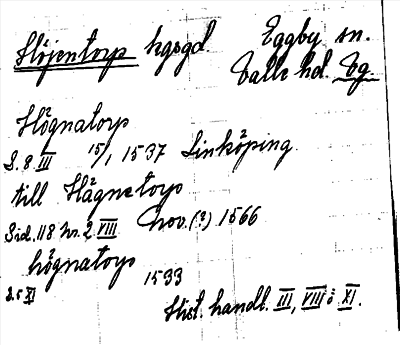 Höjentorp kgsgd Eggby sn.
Valle hd. Vg.
Högnatorp
S. 8 III 15/1 1537 Linköping
till Hägnetorp
Sid. 118 nr. 2 VIII nov. (?) 1566
högnatorp
S. 5 XI 1533
Hist. handl. III, VIII o XI.